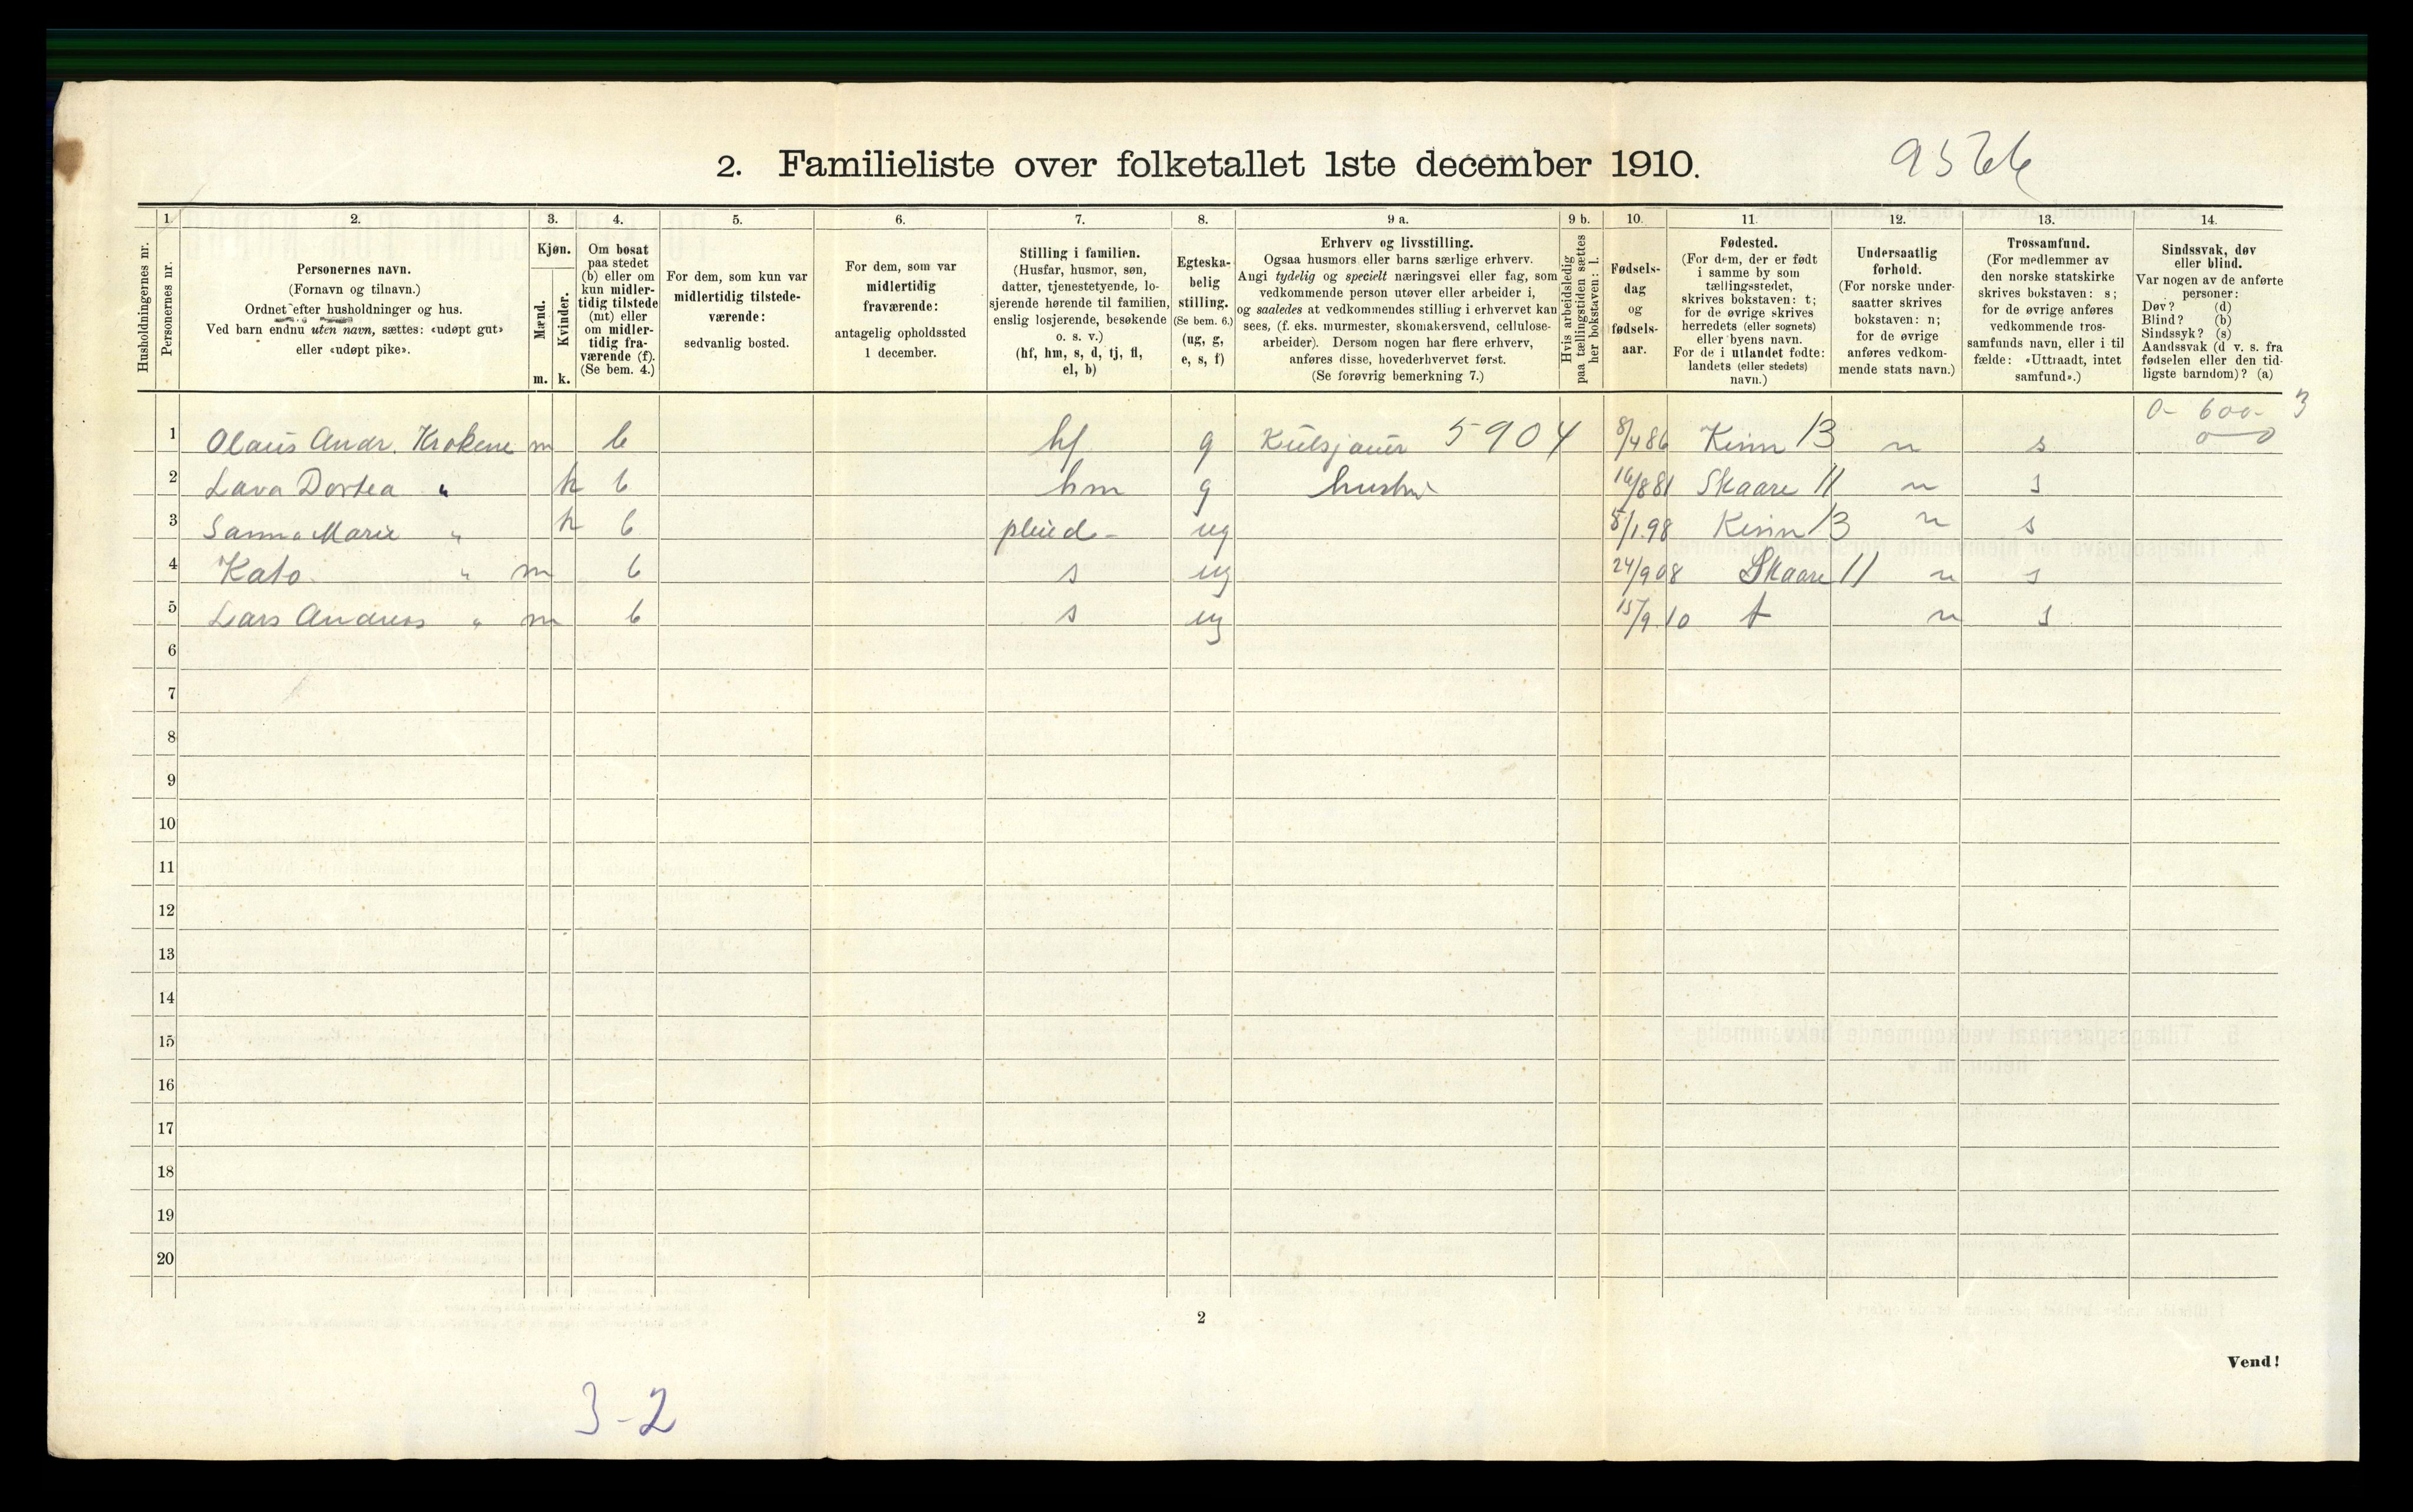 2. Familieliste over folketallet 1ste december 1910.
9566
1. 2. 3. 4. 5. 6. 7. 8. 9 a. 9 b. 10. 11. 12. 13. 14.
Husholdningernes nr.
Personernes nr.
Personernes navn.
(Fornavn og tilnavn.)
Ordnet efter husholdninger og hus.
Ved barn endnu uten navn, sættes: «udøpt gut»
eller «udøpt pike».
Kjøn.
Mænd.
Kvinder.
m. k.
Om bosat
paa stedet
(b) eller om
kun midler-
tidig tilstede
(mt) eller
om midler-
tidig fra-
værende (f).
(Se bem. 4.)
For dem, som kun var
midlertidig tilstede-
værende:
sedvanlig bosted.
For dem, som var
midlertidig
fraværende:
antagelig opholdssted
1 december.
Stilling i familien.
(Husfar, husmor, søn,
datter, tjenestetyende, lo-
sjerende hørende til familien,
enslig losjerende, besøkende
o. s. v.)
(hf, hm, s, d, tj, fl,
el, b)
Egteska-
belig
stilling.
(Se bem. 6.)
(ug, g,
e, s, f)
Erhverv og livsstilling.
Ogsaa husmors eller barns særlige erhverv.
Angi tydelig og specielt næringsvei eller fag, som
vedkommende person utøver eller arbeider i,
og saaledes at vedkommendes stilling i erhvervet kan
sees, (f. eks. murmester, skomakersvend, cellulose-
arbeider). Dersom nogen har flere erhverv,
anføres disse, hovederhvervet først.
(Se forøvrig bemerkning 7.)
Hvis arbeidsledig
paa tællingstiden sættes
her bokstaven: l.
Fødsels-
dag
og
fødsels-
aar.
Fødested.
(For dem, der er født
i samme by som
tællingsstedet,
skrives bokstaven: t;
for de øvrige skrives
herredets (eller sognets)
eller byens navn.
For de i utlandet fødte:
landets (eller stedets)
navn.)
Undersaatlig
forhold.
(For norske under-
saatter skrives
bokstaven: n;
for de øvrige
anføres vedkom-
mende stats navn.)
Trossamfund.
(For medlemmer av
den norske statskirke
skrives bokstaven: s;
for de øvrige anføres
vedkommende tros-
samfunds navn, eller i til
fælde: «Uttraadt, intet
samfund».)
Sindssvak, døv
eller blind.
Var nogen av de anførte
personer:
Døv? (d)
Blind? (b)
Sindssyk? (s)
Aandssvak (d v. s. fra
fødselen eller den tid-
ligste barndom)? (a)
0- 600- 3
1 Olaus Andr. Krokene m b hf g 5904 8/4 86 Kinn 13 n s 0 0
2 Lava Dortea " k b hm g hustru 16/8 81 Skaare 11 n s
3 Sanna Marie " k b pleied- ug 5/1 98 Kinn 13 n s
4 Kato " m b s ug 24/9 08 Skaare 11 n s
5 Lars Andreas " m b s ug 15/9 10 t n s
6
7
8
9
10
11
12
13
14
15
16
17
18
19
20
2
Vend!
3-2